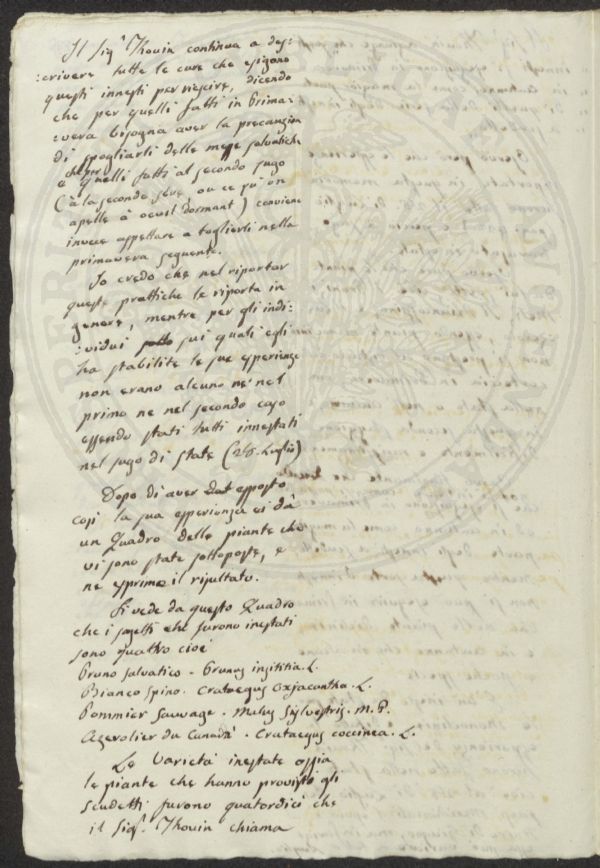 Il Sig.r Thouin continua a des:
:crivere tutte le cure che esigono
questi innesti per riescire, dicendo
che per quelli fatti in Prima:
:vera bisogna aver la precauzion
di spogliarli delle messe salvatiche
e che per quelli fatti al secondo sugo
(à la seconde séve, ou ce qu'on
apelle à oeuil dormant) conviene
invece aspettare a toglierli nella
primavera seguente.
Io credo che nel riportar
queste prattiche le riporta in
genere, mentre per gli indi:
:vidui sui quali egli
ha stabilite le sue esperienze
non erano alcuno nè nel
primo ne nel secondo caso
essendo stati tutti innestati
nel sugo di state (28. Luglio)
Dopo di aver esposto
così la sua esperienza ci dà
un Quadro delle piante che
vi sono state sottoposte, e
ne esprime il risultato.
Si vede da questo Quadro
che i sogetti che furono inestati
sono quattro cioè
Pruno salvatico - Prunus insititia. L.
Bianco Spino. Crataegus Oxjacantha. L.
Pommier Sauvage - Malus Sylvestris. M. P.
Azerolier du Canada - Crataegus coccinea. L.
Le Varietà inestate ossia
le piante che hanno provisto gli
Scudetti furono quatordici che
il Sig.r Thouin chiama